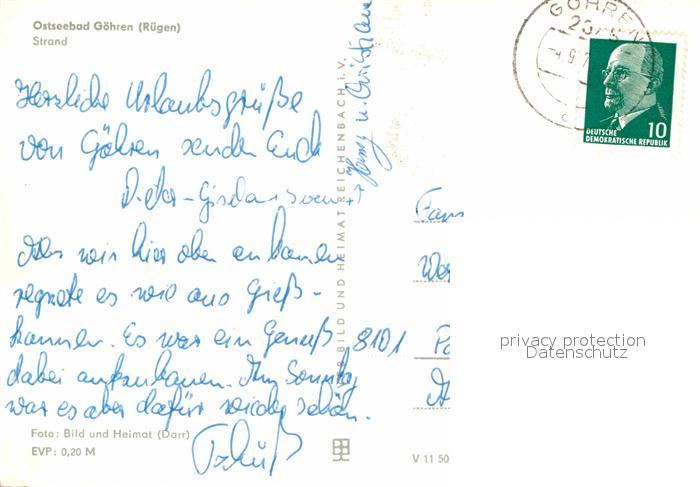 Ostseebad Göhren (Rügen)
Strand
Herzliche Urlaubsgrüße
von Göhren senden Euch
Dieter - Gisela
Als wir hier oben ankamen
regnete es wie aus Gieß-
kannen. Es war ein Genuß
dabei aufzubauen. Am Sonntag
war es aber dafür wieder schön.
Tschüß
Foto: Bild und Heimat (Darr)
EVP: 0,20 M
BILD UND HEIMAT REICHENBACH I. V.
V 11 50
GÖHREN
10
DEUTSCHE
DEMOKRATISCHE REPUBLIK
Fam
8101
privacy protection
Datenschutz